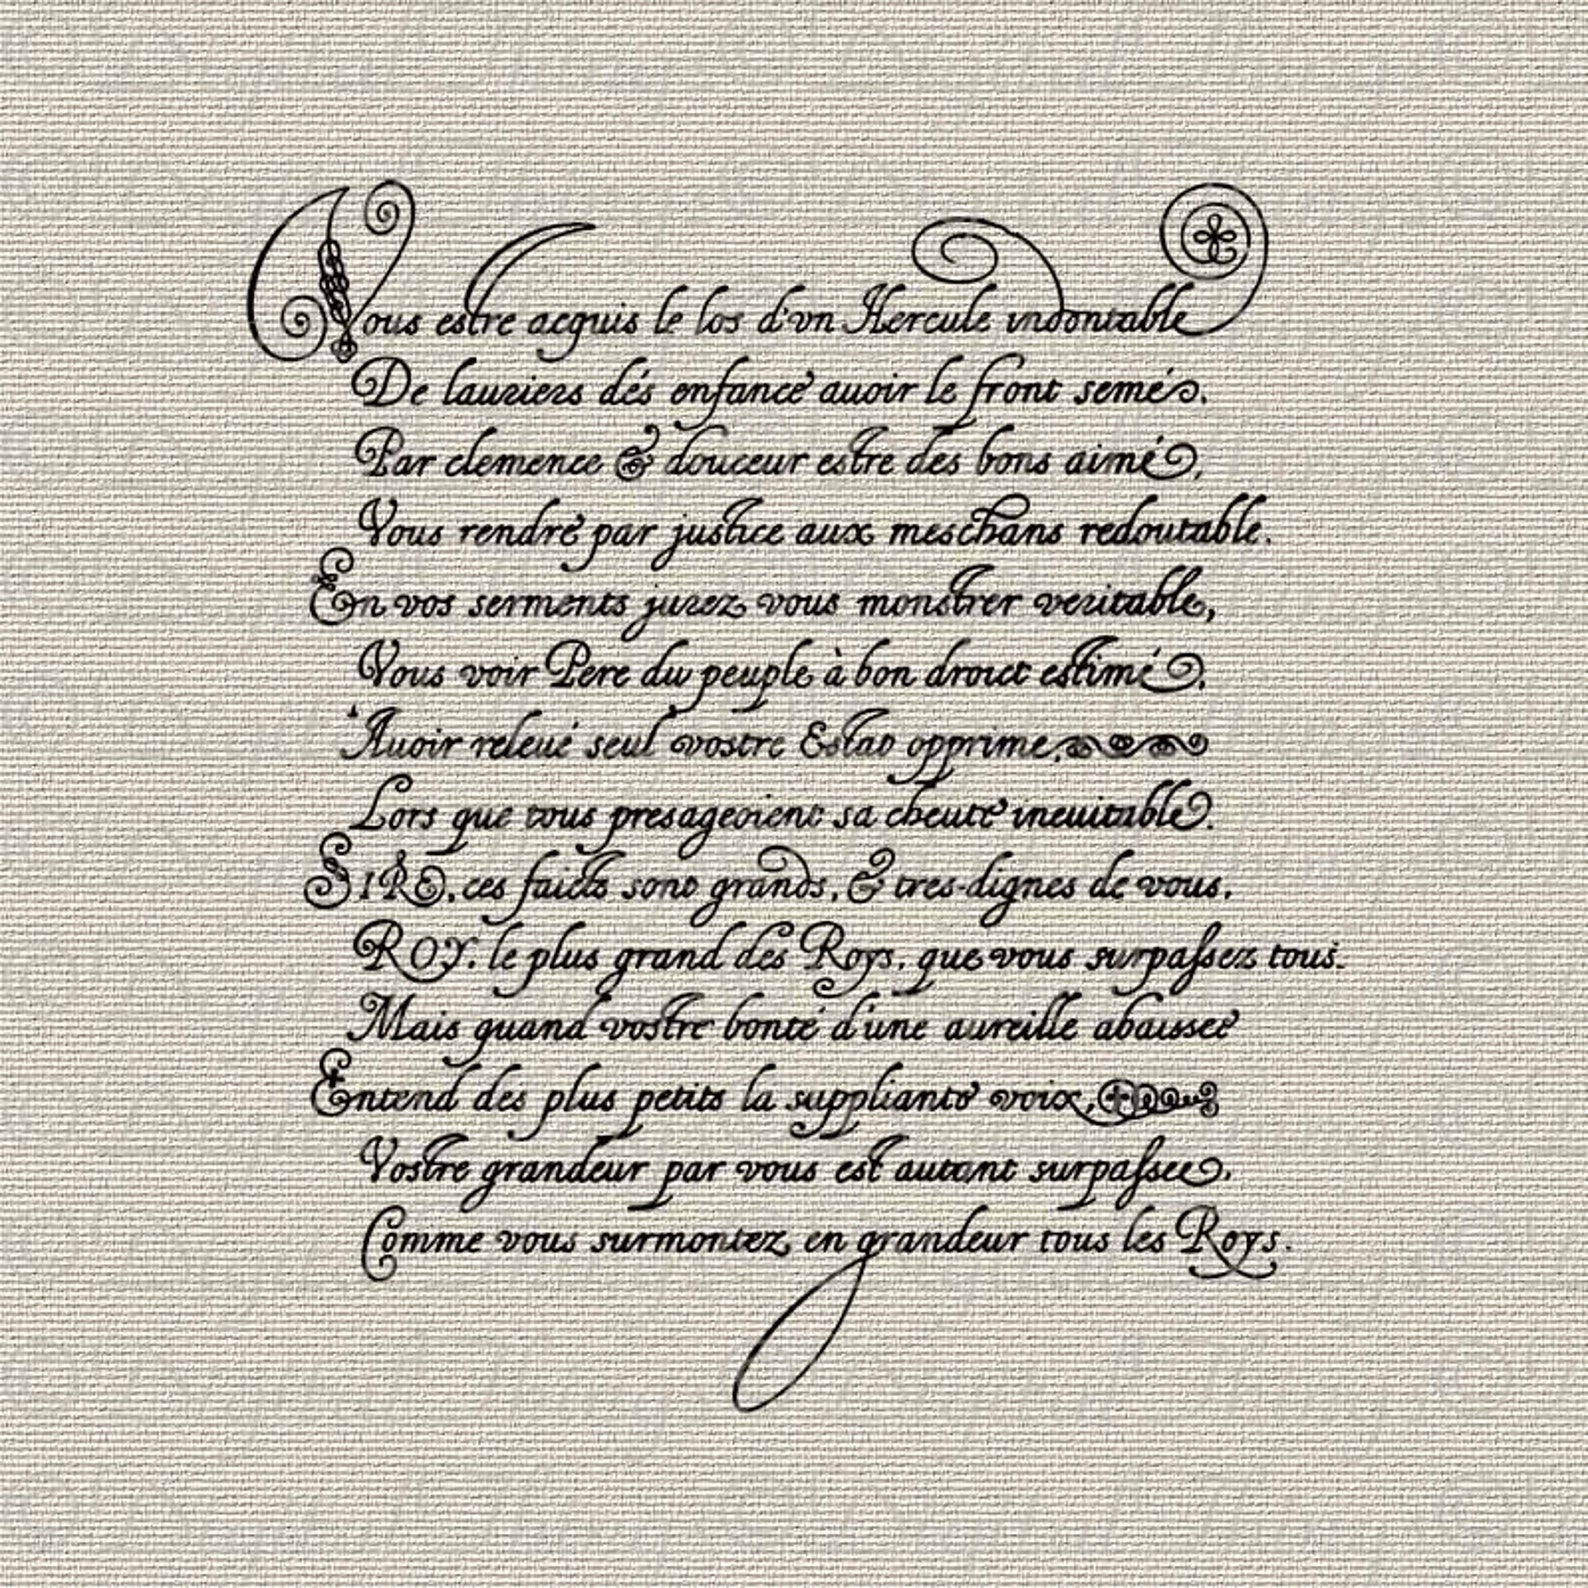 Vous estre acquis le los d'vn Hercule indontable
De lauriers dés enfance auoir le front semé,
Par clemence & douceur estre des bons aimé,
Vous rendre par justice aux meschans redoutable.
En vos serments jurez vous monstrer veritable,
Vous voir Pere du peuple à bon droict estimé,
Auoir releué seul vostre Estat opprime,
Lors que tous presageoient sa cheute ineuitable.
SIRE, ces faicts sont grands, & tres-dignes de vous,
ROY, le plus grand des Roys, que vous surpassez tous.
Mais quand vostre bonté d'une aureille abaissee
Entend des plus petits la suppliante voix,
Vostre grandeur par vous est autant surpassee,
Comme vous surmontez en grandeur tous les Roys.